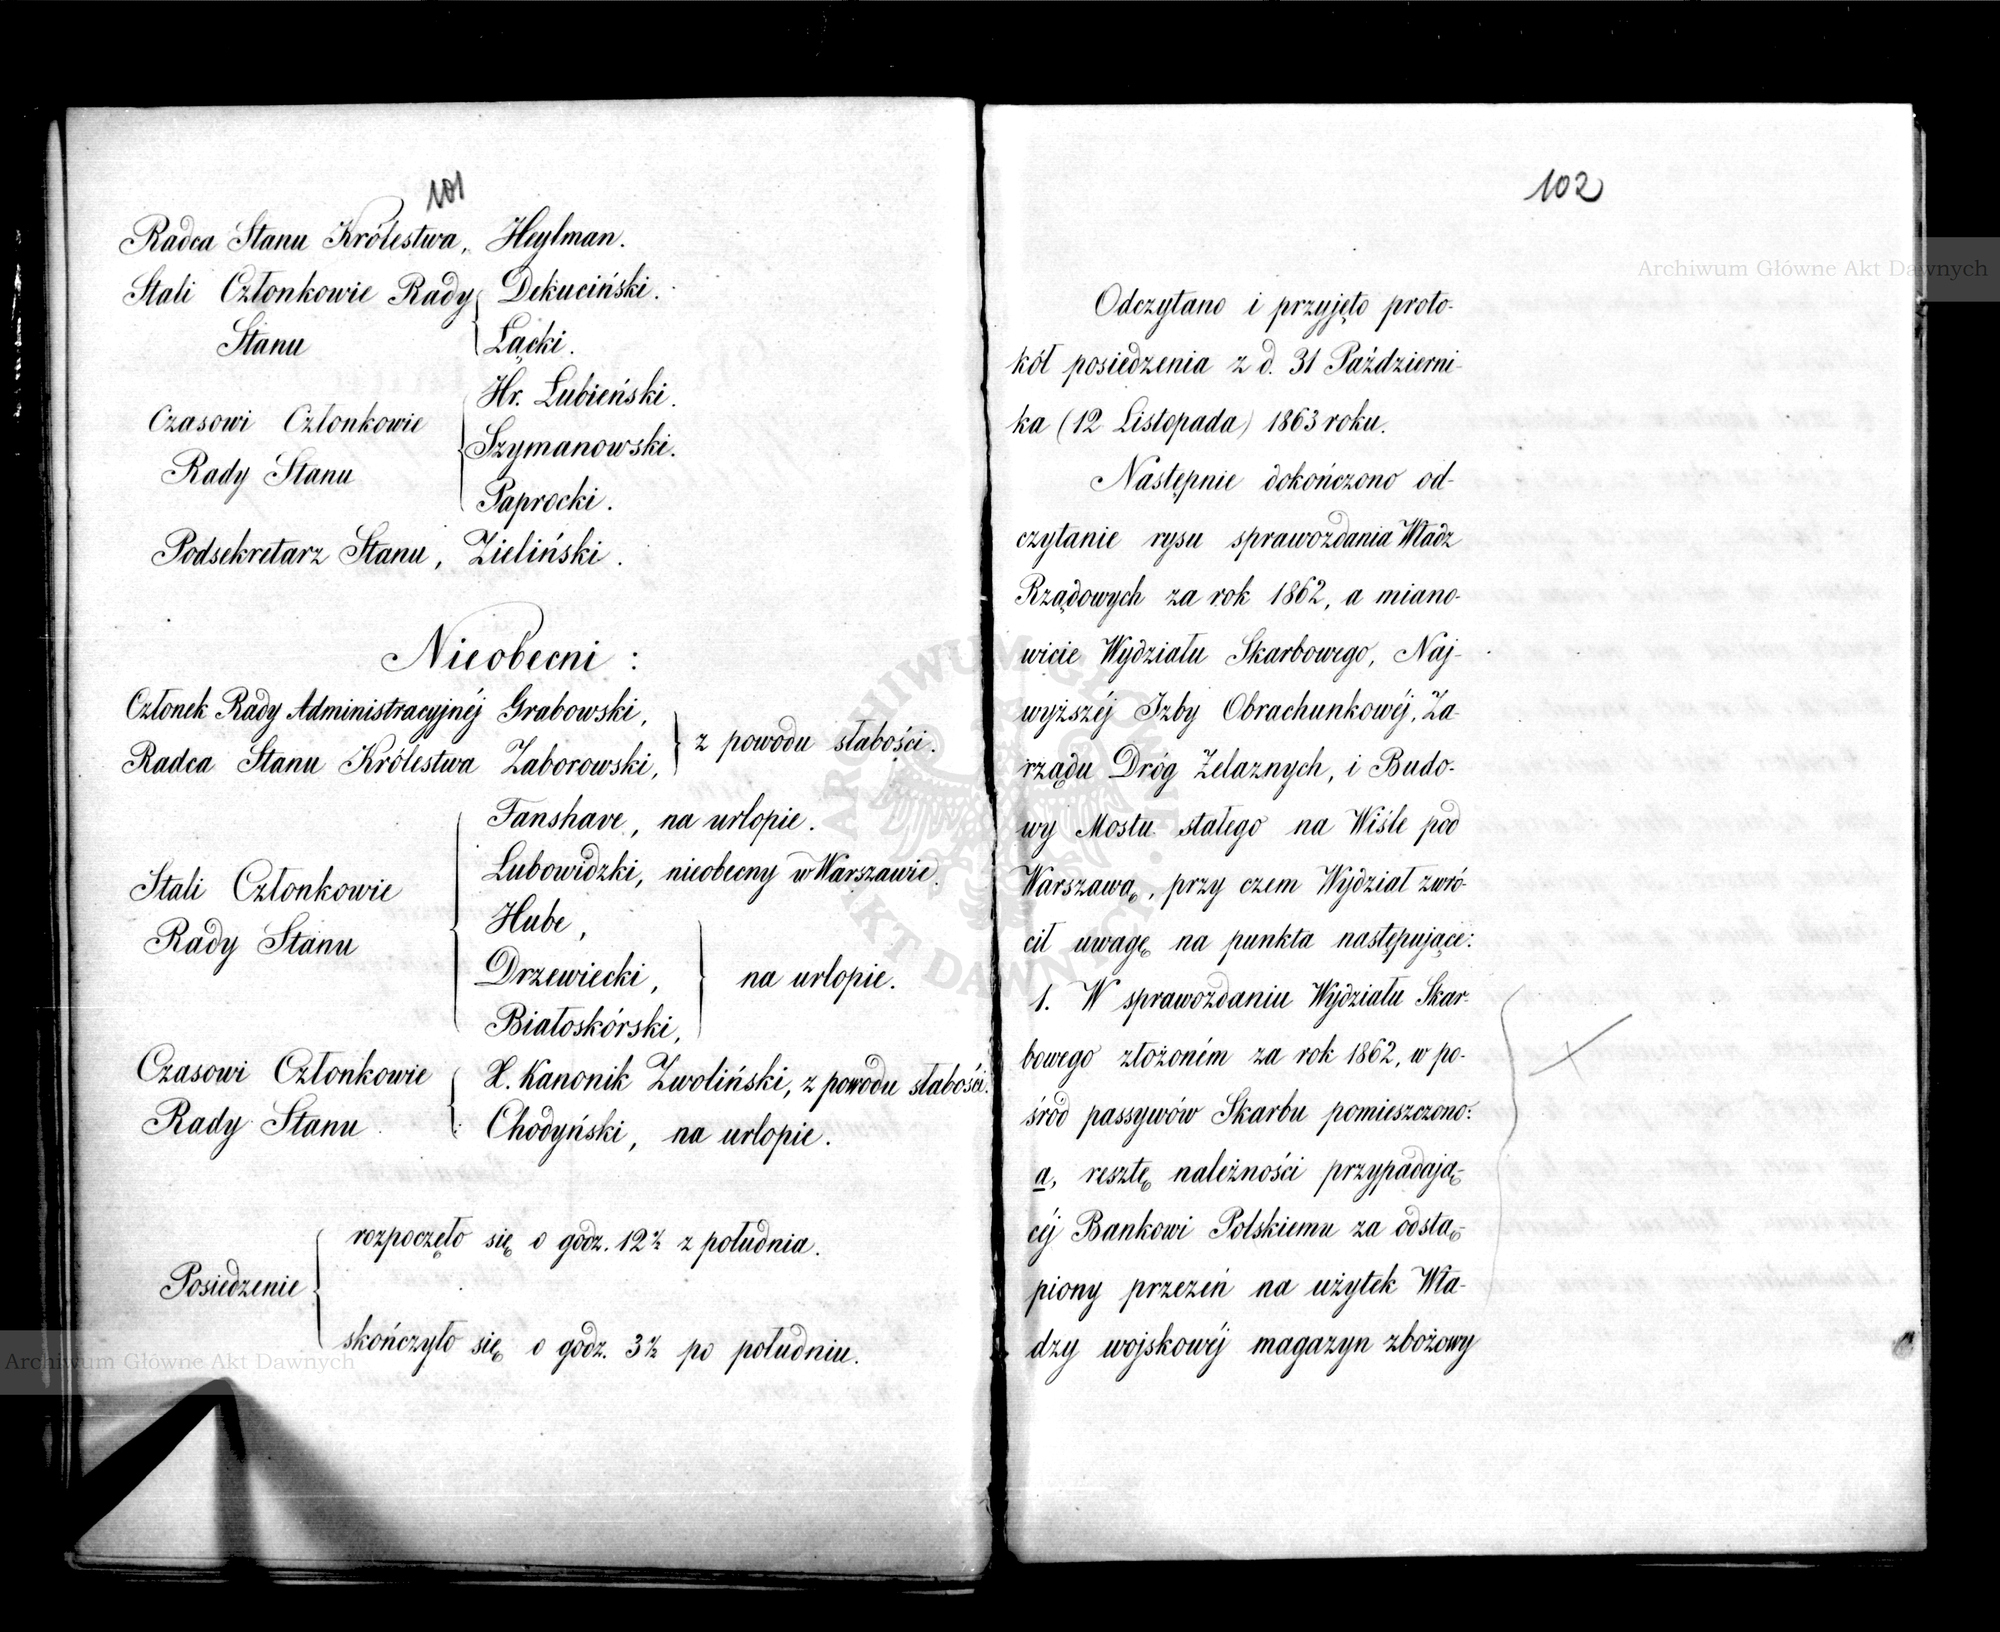 101
Radca Stanu Królestwa, Heylman.
Stali Członkowie Rady Stanu
Dekuciński.
Łącki.
Czasowi Członkowie Rady Stanu
Hr. Łubieński.
Szymanowski.
Paprocki.
Podsekretarz Stanu, Zieliński.
Nieobecni:
Członek Rady Administracyjnéj Grabowski,
Radca Stanu Królestwa Zaborowski,
z powodu słabości.
Stali Członkowie
Rady Stanu
Fanshave, na urlopie.
Lubowidzki, nieobecny w Warszawie.
Hube,
Drzewiecki,
Białoskórski,
na urlopie.
Czasowi Członkowie
Rady Stanu
X. Kanonik Zwoliński, z powodu słabości.
Chodyński, na urlopie.
Posiedzenie
rozpoczęło się o godz. 12½ z południa.
skończyło się o godz. 3½ po południu.
102
Odczytano i przyjęto proto-
kół posiedzenia z d. 31 Październi-
ka (12 Listopada) 1863 roku.
Następnie dokończono od-
czytanie rysu sprawozdania Władz
Rządowych za rok 1862, a miano-
wicie Wydziału Skarbowego, Naj-
wyższéj Izby Obrachunkowéj, Za-
rządu Dróg Żelaznych, i Budo-
wy Mostu stałego na Wiśle pod
Warszawą, przy czem Wydział zwró-
cił uwagę na punkta następujące:
1. W sprawozdaniu Wydziału Skar-
bowego złożoném za rok 1862, w po-
śród passywów Skarbu pomieszczono:
a, resztę należności przypadają-
céj Bankowi Polskiemu za odstą-
piony przezeń na użytek Wła-
dzy wojskowéj magazyn zbożowy
Archiwum Główne Akt Dawnych
Archiwum Główne Akt Dawnych
ARCHIWUM GŁÓWNE AKT DAWNYCH